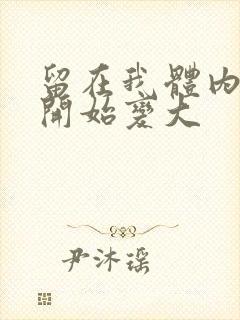 留在我體内
開始變大
尹沐瑶